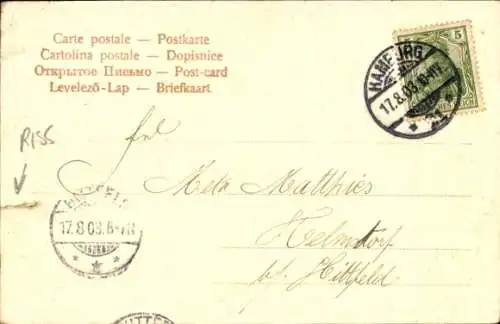 Carte postale — Postkarte
Cartolina postale — Dopisnice
Открытое Письмо — Post-card
Levelező-Lap — Briefkaart
5
HAMBURG
17.8.03.
RISS
Frl.
Meta Matthies
Helmstorf
bf. Hittfeld
HITTFELD
17.8.03.